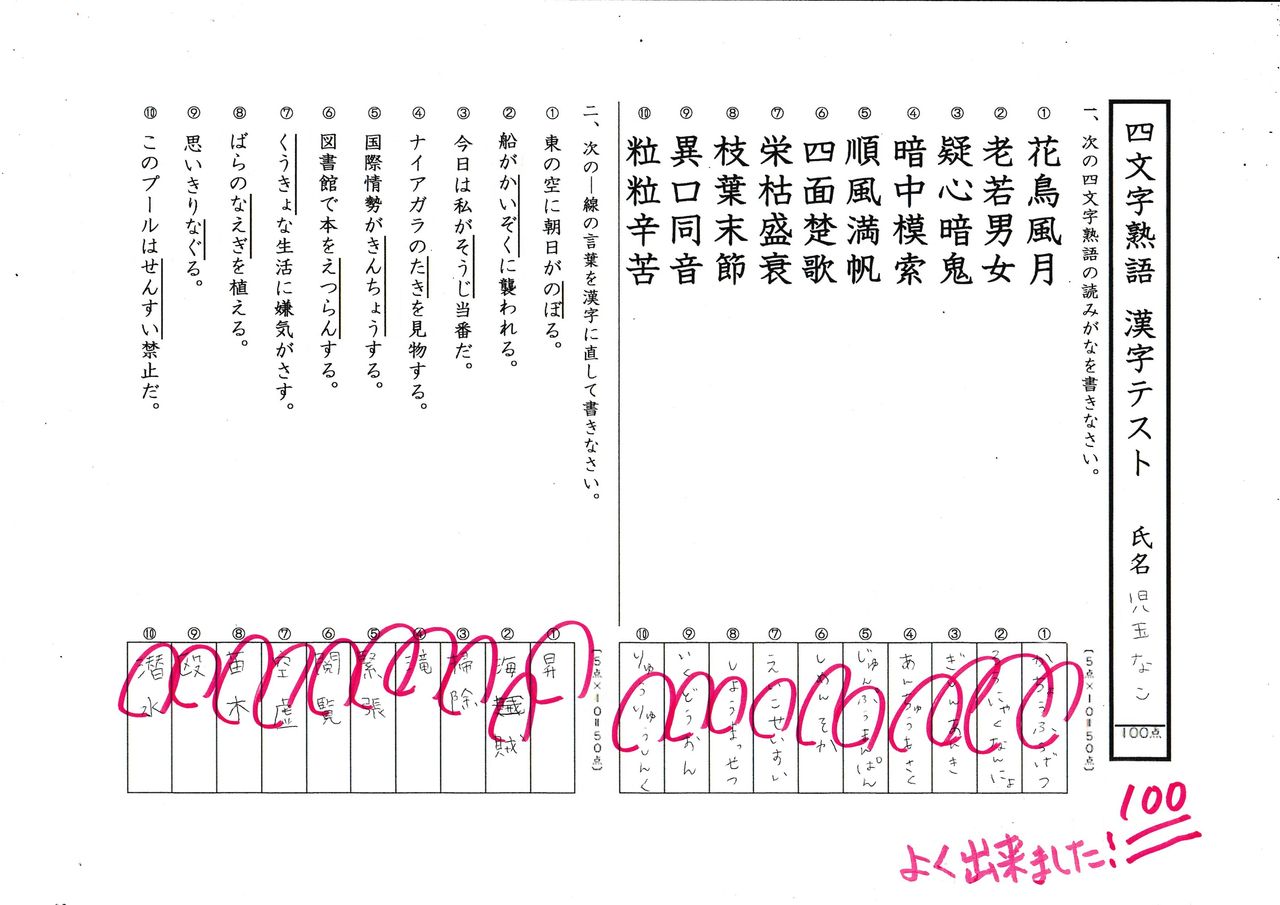 四文字熟語 漢字テスト 氏名 児玉 なこ 100点
100
よく出来ました!
一、次の四文字熟語の読みがなを書きなさい。
① 花鳥風月
② 老若男女
③ 疑心暗鬼
④ 暗中模索
⑤ 順風満帆
⑥ 四面楚歌
⑦ 栄枯盛衰
⑧ 枝葉末節
⑨ 異口同音
⑩ 粒粒辛苦
(5点×10=50点)
① かちょうふうげつ
② ろうにゃくなんにょ
③ ぎしんあんき
④ あんちゅうもさく
⑤ じゅんぷうまんぱん
⑥ しめんそか
⑦ えいこせいすい
⑧ しようまっせつ
⑨ いくどうおん
⑩ りゅうりゅうしんく
二、次の―線の言葉を漢字に直して書きなさい。
① 東の空に朝日がのぼる。
② 船がかいぞくに襲われる。
③ 今日は私がそうじ当番だ。
④ ナイアガラのたきを見物する。
⑤ 国際情勢がきんちょうする。
⑥ 図書館で本をえつらんする。
⑦ くうきょな生活に嫌気がさす。
⑧ ばらのなえぎを植える。
⑨ 思いきりなぐる。
⑩ このプールはせんすい禁止だ。
(5点×10=50点)
① 昇
② 海賊
③ 掃除
④ 滝
⑤ 緊張
⑥ 閲覧
⑦ 空虚
⑧ 苗木
⑨ 殴
⑩ 潜水